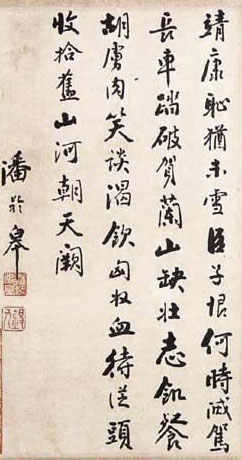 靖康恥猶未雪臣子恨何時滅駕
長車踏破賀蘭山缺壯志飢餐
胡虜肉笑談渴飲匈奴血待從頭
收拾舊山河朝天闕
潘於皋